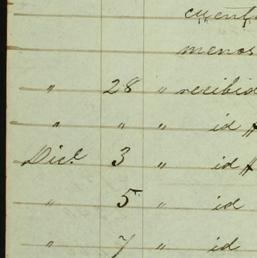 cuent
menos
" 28 " recibid
" " " id
Dice. 3 " id
" 5 id
" 7 " id